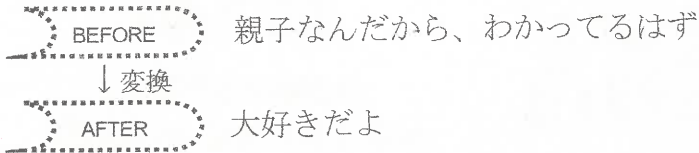 BEFORE 親子なんだから、わかってるはず
↓変換
AFTER 大好きだよ